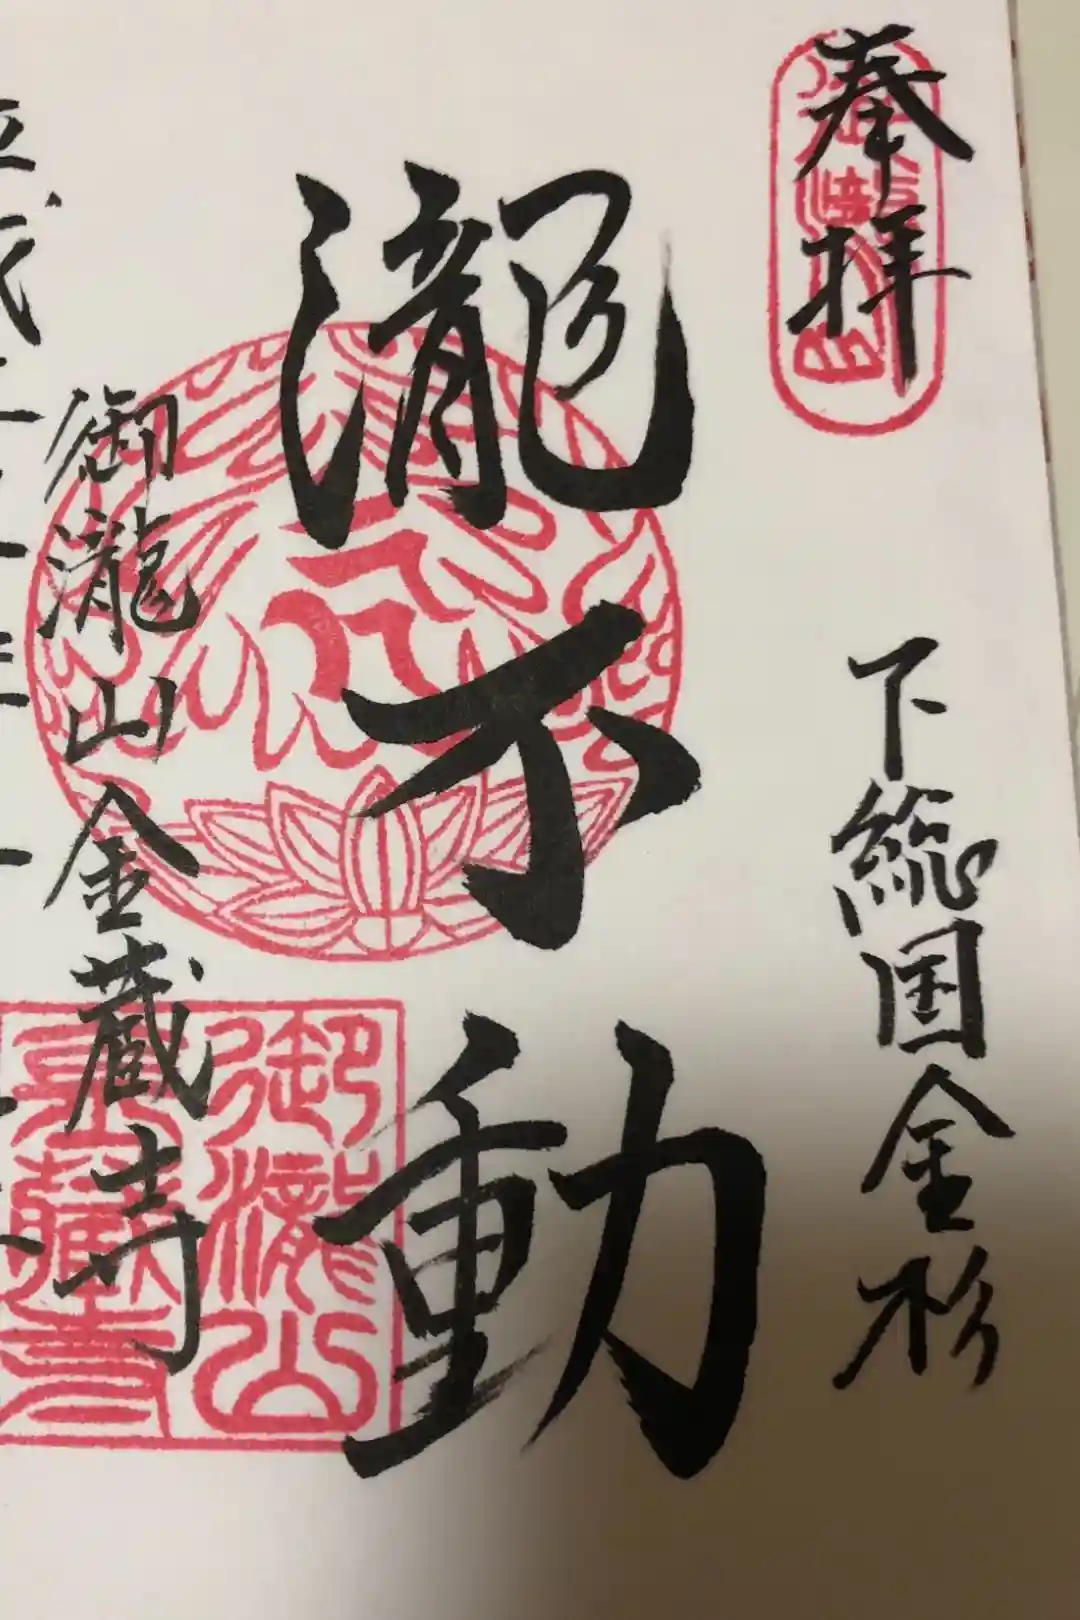 奉拝
下総国金杉
瀧不動
御瀧山金蔵寺
御瀧山
金蔵寺